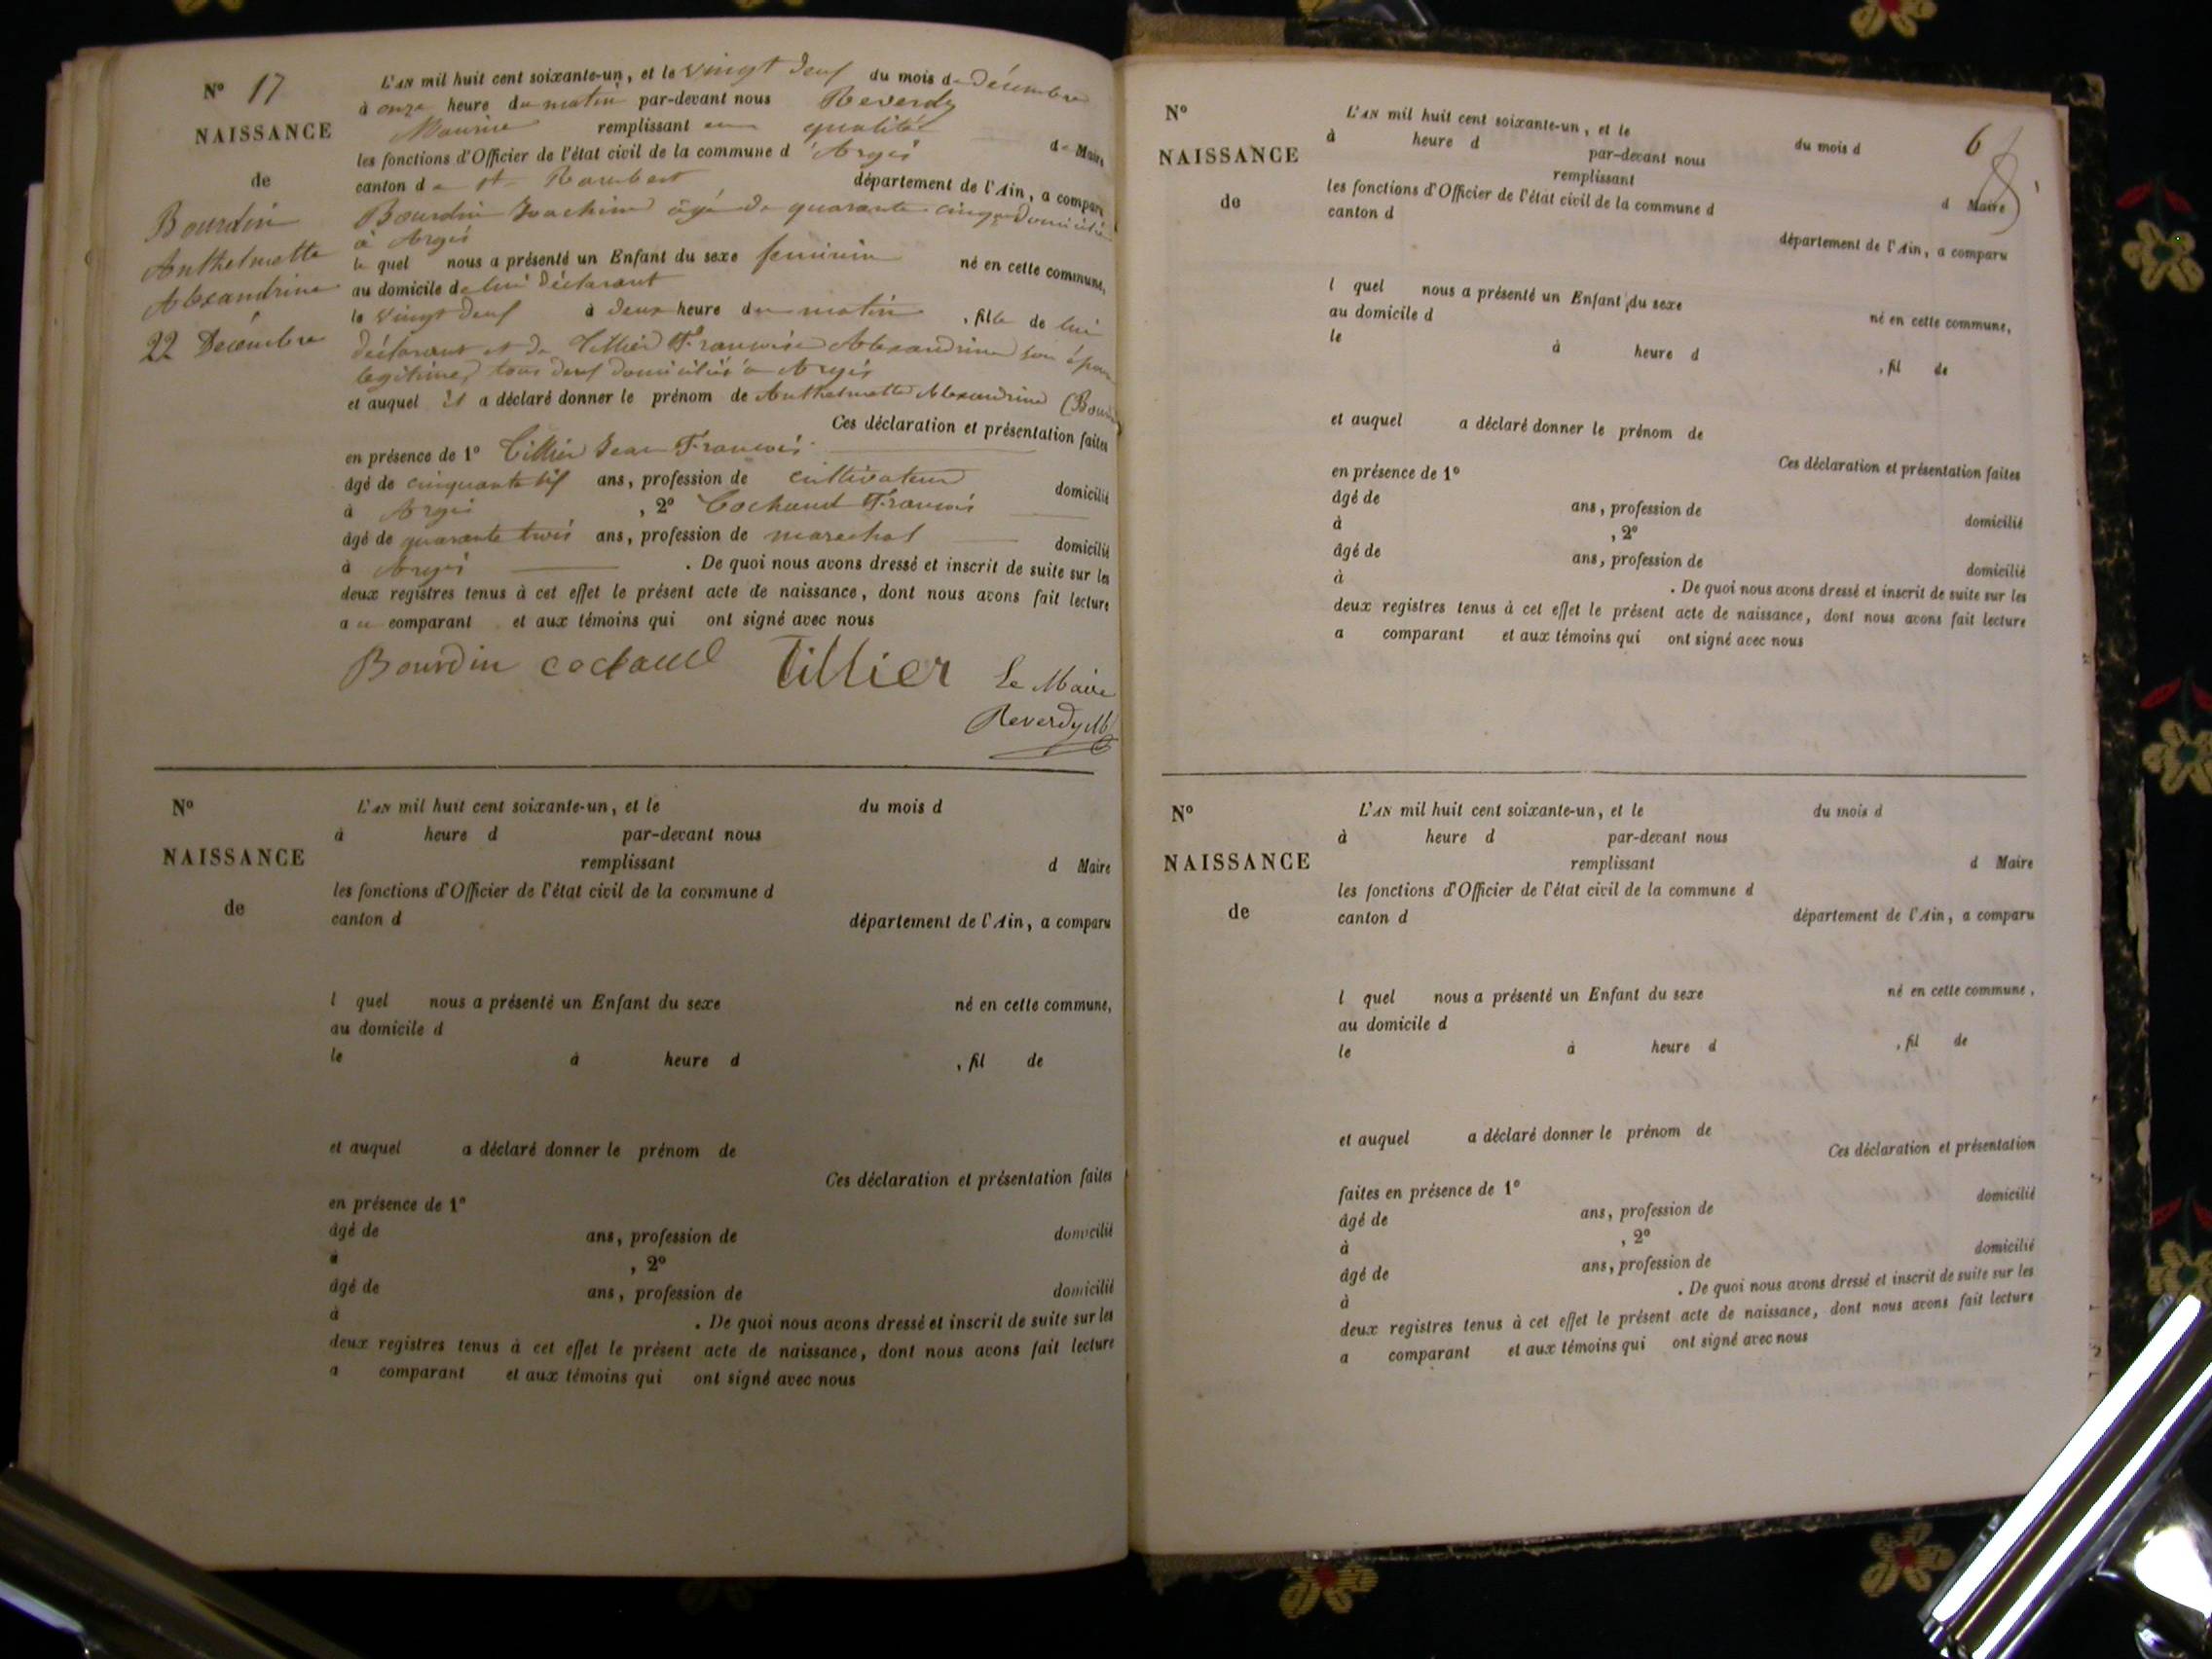 N° 17
NAISSANCE
de
Bourdin
Anthelmette
Alexandrine
22 Decembre
L'AN mil huit cent soixante-un, et le vingt deux du mois de Décembre
à onze heure du matin par-devant nous Reverdy
Maurice remplissant en qualité de Maire
les fonctions d'Officier de l'état civil de la commune d'Argis
canton de St Rambert département de l'Ain, a comparu
Bourdin Joachim âgé de quarante cinq domicilié
à Argis
le quel nous a présenté un Enfant du sexe feminin né en cette commune,
au domicile de lui déclarant
le vingt deux à deux heure du matin , fille de lui
déclarant et de Tillier Françoise Alexandrine son épouse
legitime, tous deux domiciliés à Argis
et auquel il a déclaré donner le prénom de Anthelmette Alexandrine (Bourdin
Ces déclaration et présentation faites
en présence de 1° Tillier Jean François
âgé de cinquante six ans, profession de cultivateur domicilié
à Argis , 2° Cochaud François
âgé de quarante trois ans, profession de marechal domicilié
à Argis . De quoi nous avons dressé et inscrit de suite sur les
deux registres tenus à cet effet le présent acte de naissance, dont nous avons fait lecture
au comparant et aux témoins qui ont signé avec nous
Bourdin cochaud Tillier Le Maire
Reverdy M
N°
NAISSANCE
de
L'AN mil huit cent soixante-un, et le du mois d
à heure d par-devant nous
remplissant d Maire
les fonctions d'Officier de l'état civil de la commune d
canton d département de l'Ain, a comparu
l quel nous a présenté un Enfant du sexe né en cette commune,
au domicile d
le à heure d , fil de
et auquel a déclaré donner le prénom de
Ces déclaration et présentation faites
en présence de 1°
âgé de ans, profession de domicilié
à , 2°
âgé de ans, profession de domicilié
à . De quoi nous avons dressé et inscrit de suite sur les
deux registres tenus à cet effet le présent acte de naissance, dont nous avons fait lecture
a comparant et aux témoins qui ont signé avec nous
6
N°
NAISSANCE
de
L'AN mil huit cent soixante-un, et le du mois d
à heure d par-devant nous
remplissant d Maire
les fonctions d'Officier de l'état civil de la commune d
canton d département de l'Ain, a comparu
l quel nous a présenté un Enfant du sexe né en cette commune,
au domicile d
le à heure d , fil de
et auquel a déclaré donner le prénom de
Ces déclaration et présentation faites
en présence de 1°
âgé de ans, profession de domicilié
à , 2°
âgé de ans, profession de domicilié
à . De quoi nous avons dressé et inscrit de suite sur les
deux registres tenus à cet effet le présent acte de naissance, dont nous avons fait lecture
a comparant et aux témoins qui ont signé avec nous
N°
NAISSANCE
de
L'AN mil huit cent soixante-un, et le du mois d
à heure d par-devant nous
remplissant d Maire
les fonctions d'Officier de l'état civil de la commune d
canton d département de l'Ain, a comparu
l quel nous a présenté un Enfant du sexe né en cette commune,
au domicile d
le à heure d , fil de
et auquel a déclaré donner le prénom de
Ces déclaration et présentation
faites en présence de 1° domicilié
âgé de ans, profession de
à , 2°
âgé de ans, profession de domicilié
à . De quoi nous avons dressé et inscrit de suite sur les
deux registres tenus à cet effet le présent acte de naissance, dont nous avons fait lecture
a comparant et aux témoins qui ont signé avec nous